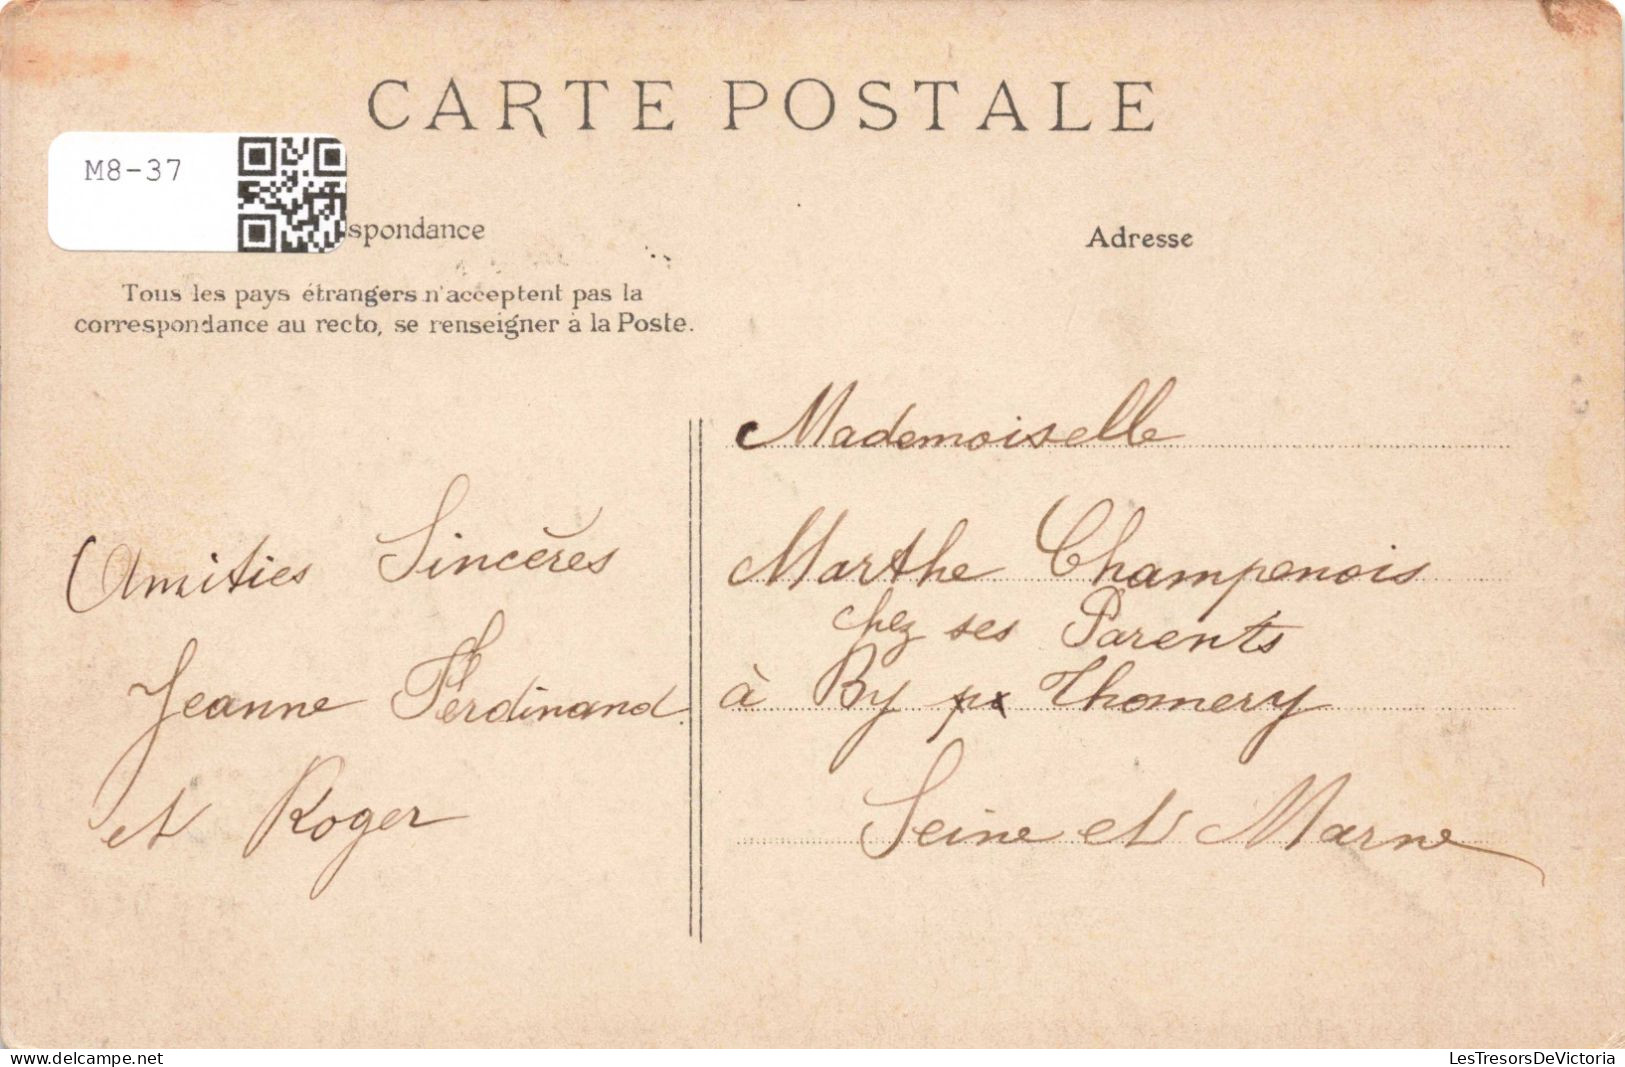 CARTE POSTALE
M8-37
spondance
Adresse
Tous les pays étrangers n'acceptent pas la
correspondance au recto, se renseigner à la Poste.
Amities Sincères
Jeanne Ferdinand
et Roger
Mademoiselle
Marthe Champenois
chez ses Parents
à By px Thomery
Seine et Marne
delcampe.net
LesTresorsDeVictoria